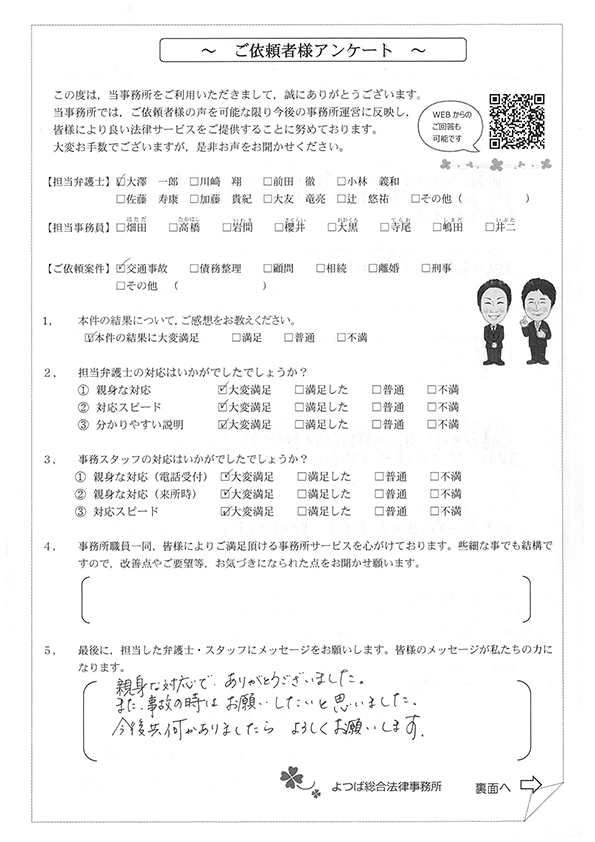 ～ ご依頼者様アンケート ～
この度は，当事務所をご利用いただきまして，誠にありがとうございます。
当事務所では，ご依頼者様の声を可能な限り今後の事務所運営に反映し，
皆様により良い法律サービスをご提供することに努めております。
大変お手数でございますが，是非お声をお聞かせください。
WEBからの
ご回答も
可能です
【担当弁護士】☑大澤 一郎 □川﨑 翔 □前田 徹 □小林 義和
□佐藤 寿康 □加藤 貴紀 □大友 竜亮 □辻 悠祐 □その他（ ）
はただ たかはし いわま さくらい おおぐろ てらお しまだ いぶた
【担当事務員】□畑田 □高橋 □岩間 □櫻井 □大黒 □寺尾 □嶋田 □井二
【ご依頼案件】☑交通事故 □債務整理 □顧問 □相続 □離婚 □刑事
□その他 （ ）
1． 本件の結果について，ご感想をお教えください。
☑本件の結果に大変満足 □満足 □普通 □不満
2． 担当弁護士の対応はいかがでしたでしょうか？
① 親身な対応 ☑大変満足 □満足した □普通 □不満
② 対応スピード ☑大変満足 □満足した □普通 □不満
③ 分かりやすい説明 ☑大変満足 □満足した □普通 □不満
3． 事務スタッフの対応はいかがでしたでしょうか？
① 親身な対応（電話受付）☑大変満足 □満足した □普通 □不満
② 親身な対応（来所時） ☑大変満足 □満足した □普通 □不満
③ 対応スピード ☑大変満足 □満足した □普通 □不満
4． 事務所職員一同，皆様によりご満足頂ける事務所サービスを心がけております。些細な事でも結構で
すので，改善点やご要望等，お気づきになられた点をお聞かせ願います。
5． 最後に，担当した弁護士・スタッフにメッセージをお願いします。皆様のメッセージが私たちの力に
なります。
親身な対応で、ありがとうございました。
また、事故の時はお願いしたいと思いました。
今後共何かありましたら よろしくお願いします。
よつば総合法律事務所
裏面へ